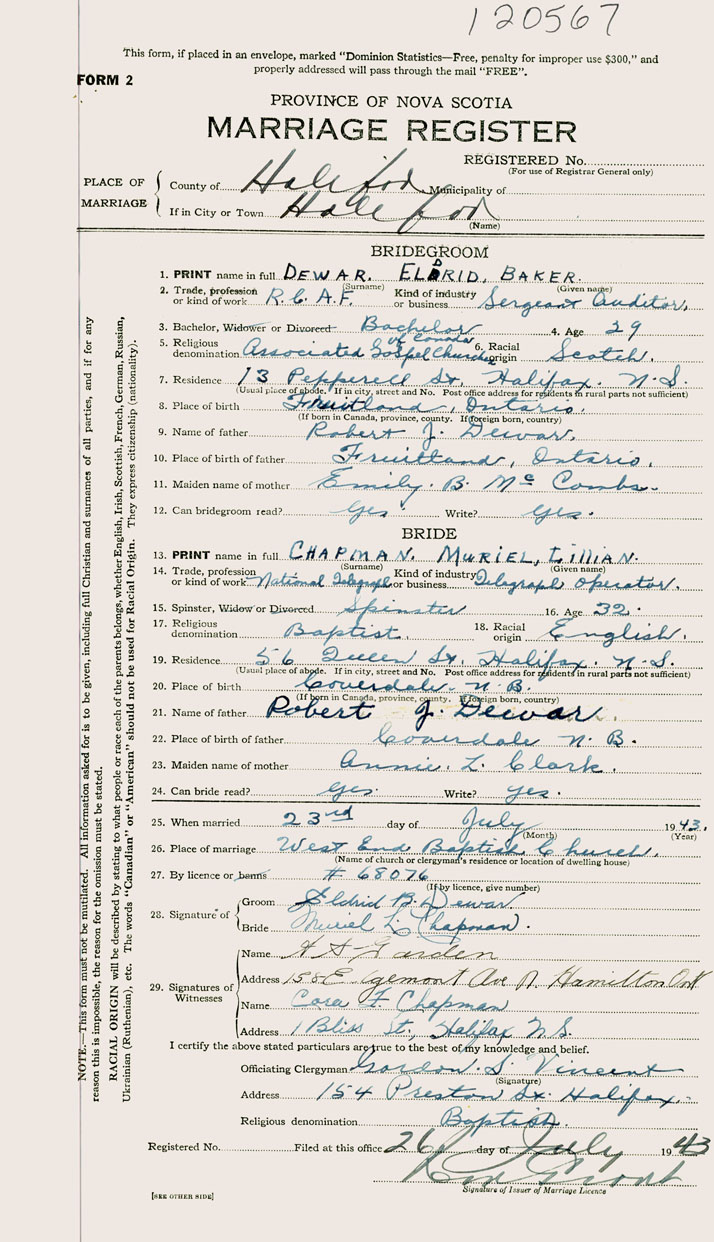 120567
This form, if placed in an envelope, marked "Dominion Statistics—Free, penalty for improper use $300," and
properly addressed will pass through the mail "FREE".
FORM 2
PROVINCE OF NOVA SCOTIA
MARRIAGE REGISTER
REGISTERED No.
(For use of Registrar General only)
PLACE OF MARRIAGE
County of Halifax Municipality of
If in City or Town Halifax
(Name)
BRIDEGROOM
1. PRINT name in full DEWAR. ELDRID, BAKER.
(Surname) (Given name)
2. Trade, profession or kind of work R.C.A.F. Kind of industry or business Sergeant Auditor.
3. Bachelor, Widower or Divorced Bachelor 4. Age 29
5. Religious denomination Associated Gospel Churches of Canada 6. Racial origin Scotch.
7. Residence 13 Pepperell St. Halifax. N.S.
(Usual place of abode. If in city, street and No. Post office address for residents in rural parts not sufficient)
8. Place of birth Fruitland, Ontario.
(If born in Canada, province, county. If foreign born, country)
9. Name of father Robert J. Dewar.
10. Place of birth of father Fruitland, Ontario.
11. Maiden name of mother Emily. B. McCombs.
12. Can bridegroom read? Yes. Write? Yes.
BRIDE
13. PRINT name in full CHAPMAN. MURIEL, LILLIAN.
(Surname) (Given name)
14. Trade, profession or kind of work National Telegraph Kind of industry or business Telegraph Operator.
15. Spinster, Widow or Divorced Spinster 16. Age 32.
17. Religious denomination Baptist. 18. Racial origin English.
19. Residence 56 Queen St. Halifax. N.S.
(Usual place of abode. If in city, street and No. Post office address for residents in rural parts not sufficient)
20. Place of birth Coverdale. N.B.
(If born in Canada, province, county. If foreign born, country)
21. Name of father Robert J. Dewar.
22. Place of birth of father Coverdale N.B.
23. Maiden name of mother Annie. L. Clark.
24. Can bride read? Yes. Write? Yes.
25. When married 23rd day of July 1943.
(Month) (Year)
26. Place of marriage West End Baptist Church.
(Name of church or clergyman's residence or location of dwelling house)
27. By licence or banns # 68076
(If by licence, give number)
28. Signature of
Groom Eldrid B. Dewar
Bride Muriel L. Chapman.
29. Signatures of Witnesses
Name Garden
Address 158 Egemont Ave N. Hamilton Ont
Name Cora F. Chapman
Address 1 Bliss St., Halifax N.S.
I certify the above stated particulars are true to the best of my knowledge and belief.
Officiating Clergyman Gordon. S. Vincent
(Signature)
Address 154 Preston St. Halifax.
Religious denomination Baptist.
Registered No. Filed at this office 26 day of July 1943
Signature of Issuer of Marriage Licence
[SEE OTHER SIDE]
NOTE.—This form must not be mutilated. All information asked for is to be given, including full Christian and surnames of all parties, and if for any
reason this is impossible, the reason for the omission must be stated.
RACIAL ORIGIN will be described by stating to what people or race each of the parents belongs, whether English, Irish, Scottish, French, German, Russian,
Ukrainian (Ruthenian), etc. The words "Canadian" or "American" should not be used for Racial Origin. They express citizenship (nationality).